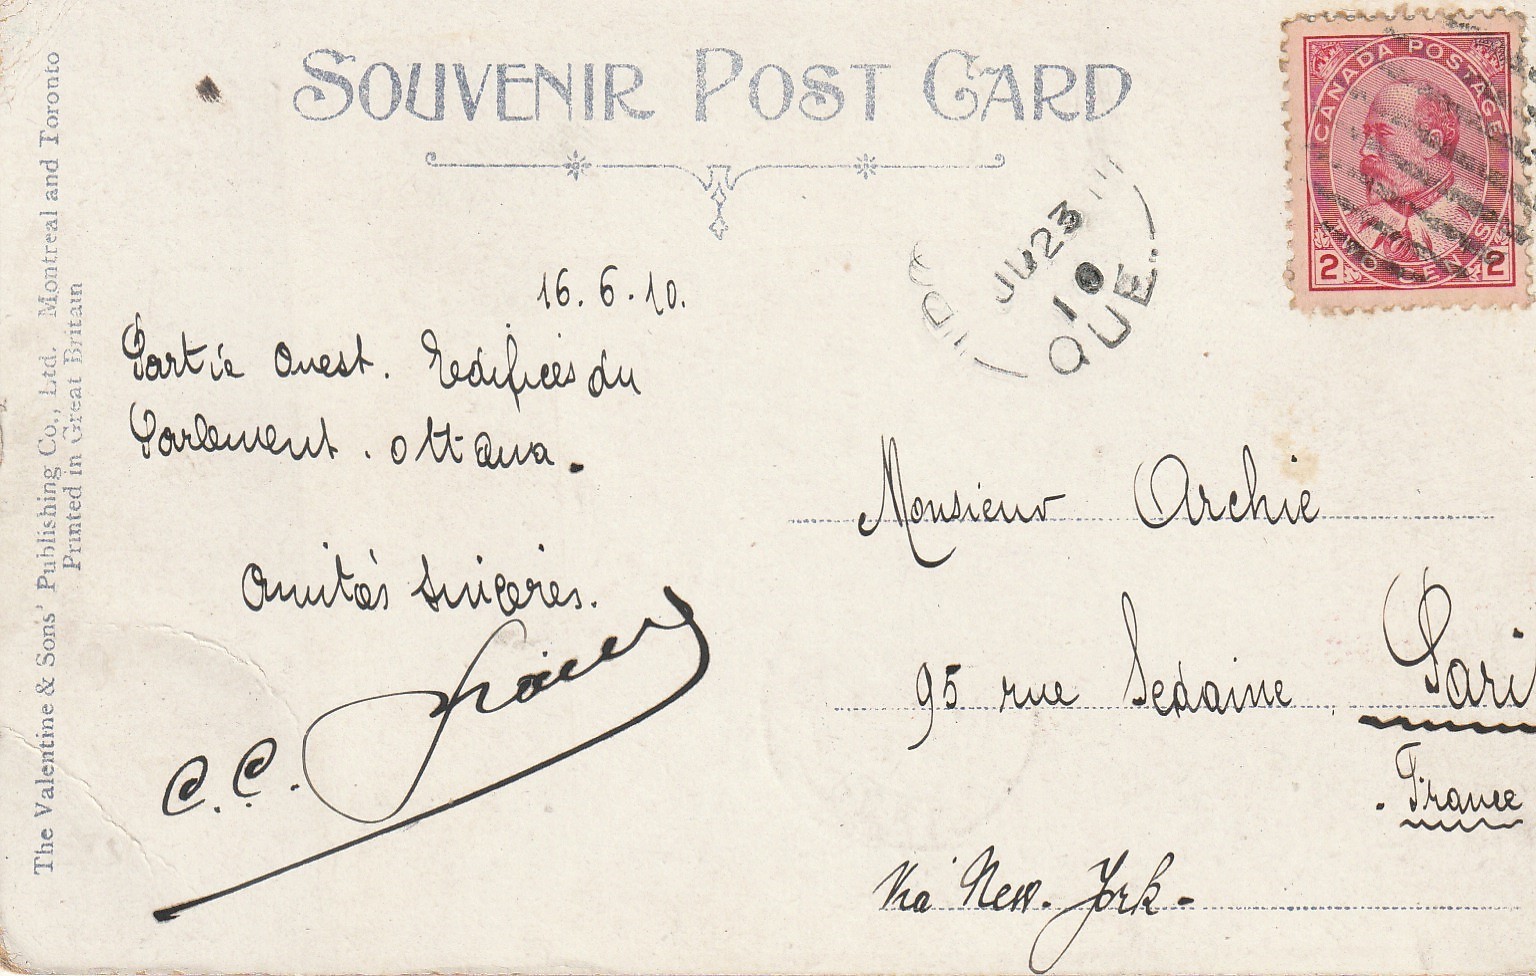 SOUVENIR POST CARD
CANADA POSTAGE
2 CENTS 2
JU 23
10
QUE.
16.6.10.
Partie Ouest. Edifices du
Parlement. Ottawa.
Amités sincères.
C.C.
Monsieur Archie
95 rue Sedaine. Pari
France
Via New-York-
The Valentine & Sons' Publishing Co., Ltd. Montreal and Toronto
Printed in Great Britain